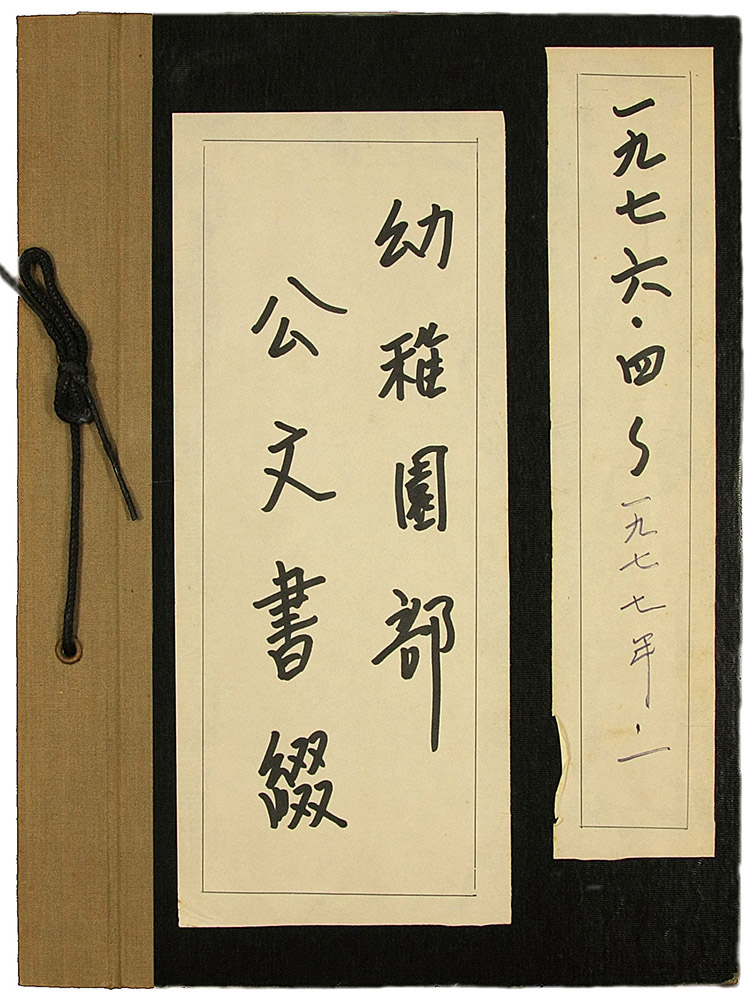 一九七六・四〜一九七七年・一
幼稚園部
公文書綴